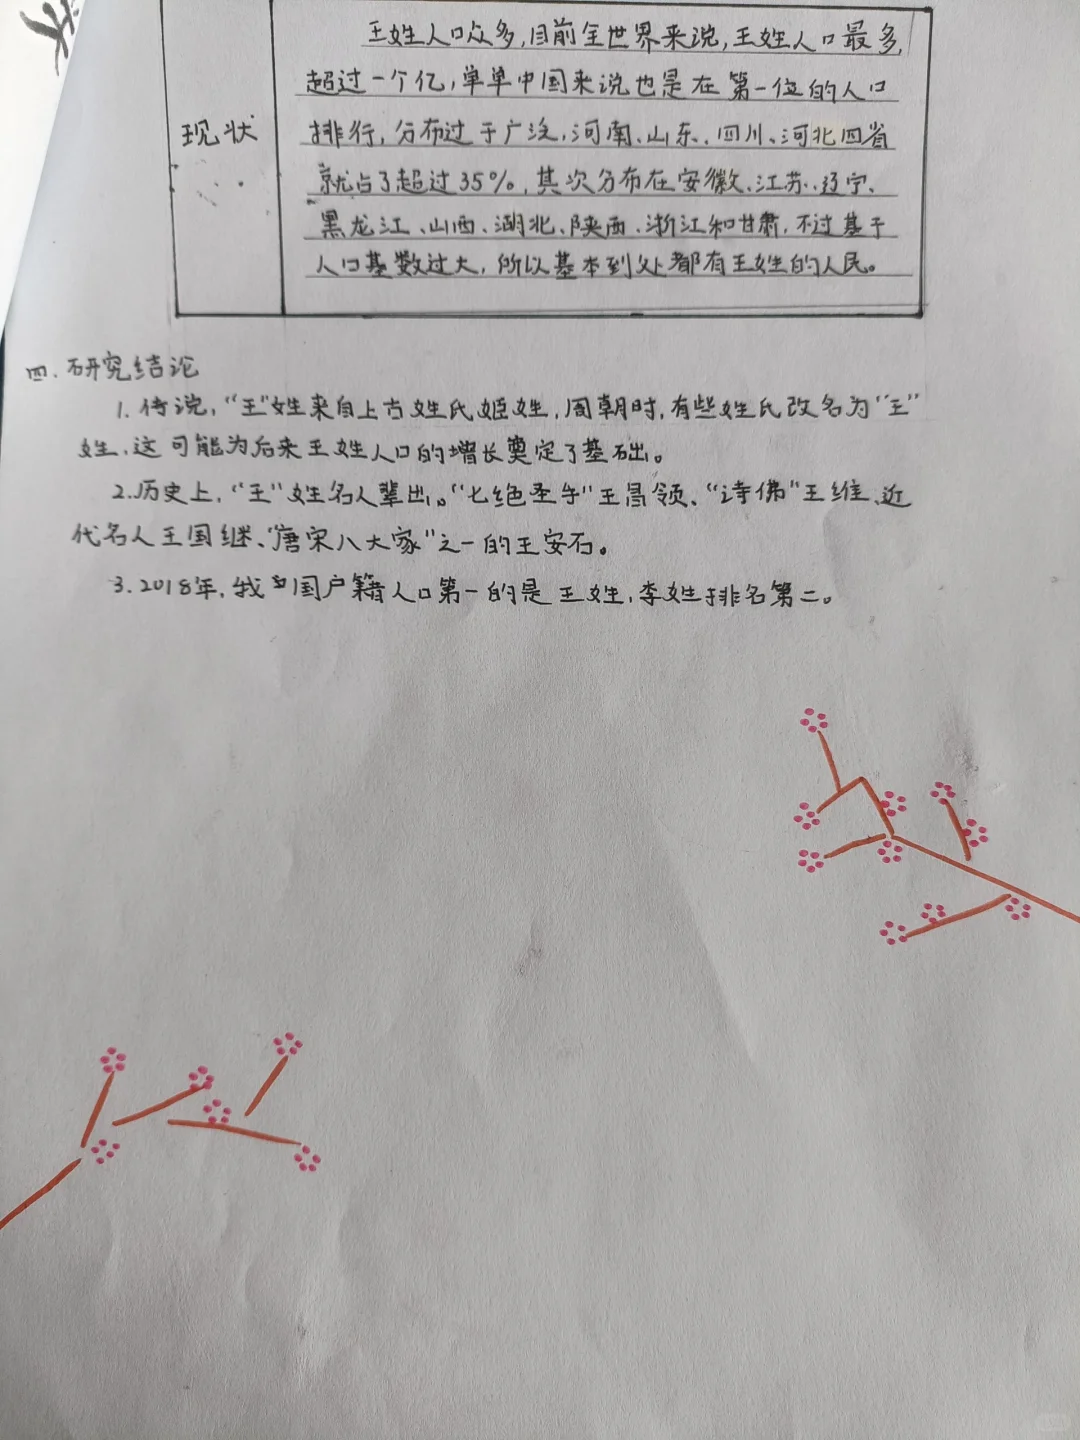 王姓人口众多,目前全世界来说,王姓人口最多,
超过一个亿,单单中国来说也是在第一位的人口
现状
排行,分布过于广泛,河南、山东、四川、河北四省
就占了超过35%,其次分布在安徽、江苏、辽宁、
黑龙江、山西、湖北、陕西、浙江和甘肃,不过基于
人口基数过大,所以基本到处都有王姓的人民。
四.研究结论
1.传说,“王”姓来自上古姓氏姬姓,周朝时,有些姓氏改名为“王”
姓,这可能为后来王姓人口的增长奠定了基础。
2.历史上,“王”姓名人辈出。“七绝圣手”王昌领、“诗佛”王维、近
代名人王国继、“唐宋八大家”之一的王安石。
3.2018年,我国户籍人口第一的是王姓,李姓排名第二。